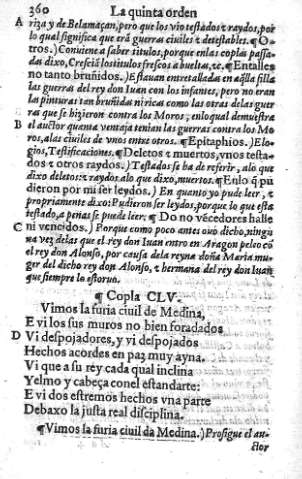 360 La quinta orden
A riza y de Belamaçan, pero que los vio testados ⁊ raydos, por
lo qual significa que erã guerras ciuiles ⁊ detestables. ¶ O-
tros.) Conuiene a saber titulos, porque en las coplas passa-
da dixo, Cresciã los titulos frescos a bueltas, ⁊c. ¶ Entalles
no tanto bruñidos.) Estauan entretallada en aq̃lla silla
las guerras del rey don Iuan con los infantes, pero no eran
las pinturas tan bruñidas ni ricas como las otras delas guer
ras que se hizieron contra los Moros, en lo qual demuestra
B el auctor quanta ventaja tenian las guerras contra los Mo
ros, a las ciuiles de vnos entre otros. ¶ Epitaphios.) Elo-
gios, Testificaciones. ¶ Deletos ⁊ muertos, vnos testa-
dos ⁊ otros raydos.) Testados se ha de referir, a lo que
dixo deletos: ⁊ raydos a lo que dixo, muertos. ¶ En lo q̃ pu
dieron por mi ser leydos.) En quanto yo pude leer, ⁊
propriamente dixo: Pudieron ser leydos, porque lo que esta
testado, a penas se puede leer. ¶ Do no vẽcedores halle
C ni vencidos.) Porque como poco antes ouo dicho, ningu
na vez delas que el rey don Iuan entro en Aragon peleo cõ
el rey don Alonso, por causa dela reyna doña Maria mu-
ger del dicho rey don Alonso, ⁊ hermana del rey don Iuan
que siempre lo estoruo.
¶ Copla CLV.
Vimos la furia ciuil de Medina,
E vi los sus muros no bien foradados
D Vi despojadores, y vi despojados
Hechos acordes en paz muy ayna.
Vi que a su rey cada qual inclina
Yelmo y cabeça con el estandarte:
E vi dos estremos hechos vna parte
Debaxo la justa real disciplina.
¶ Vimos la furia ciuil da Medina.) Prosigue el au-
ctor